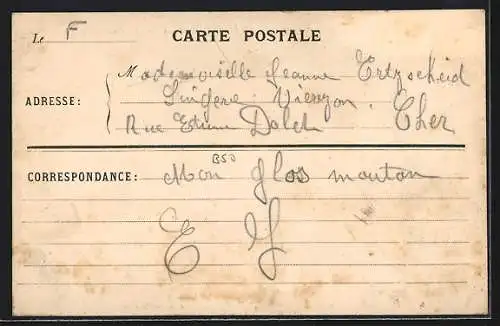 Le F
CARTE POSTALE
Mademoiselle Jeanne Ertzscheid
ADRESSE: Lingère Vierzon. Cher
Rue Etienne Dolet
BSO
CORRESPONDANCE: Mon glos mouton
E J